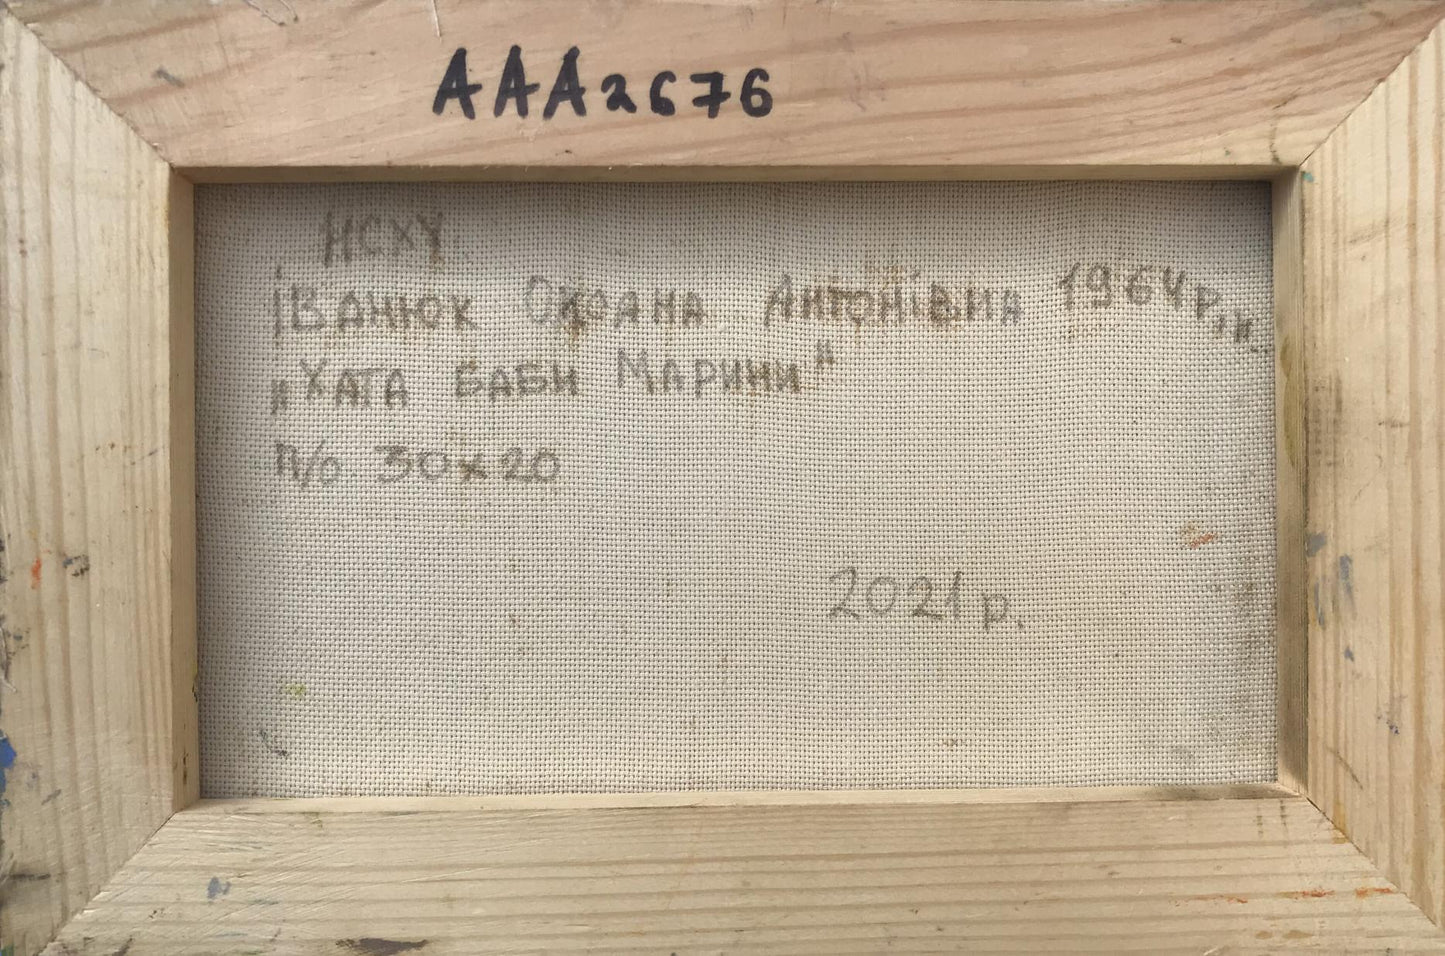 ААА2676
НСХУ
Іванюк Оксана Антонівна 1964р,„
„Хата баби Марини"
п/о 30х20
2021р.